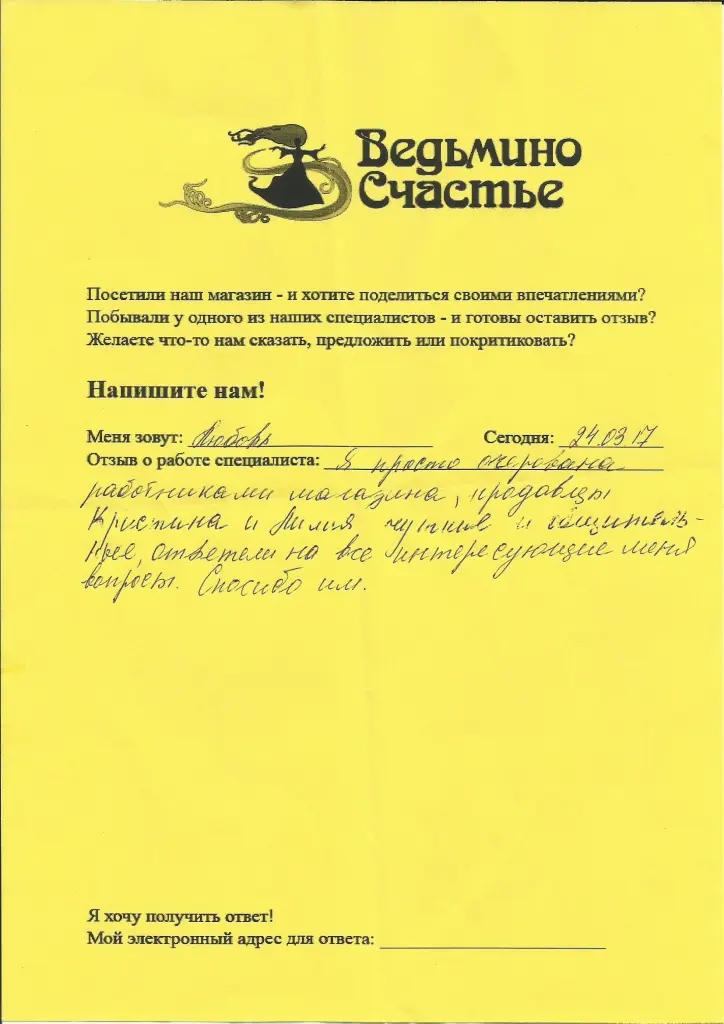 Ведьмино
Счастье
Посетили наш магазин - и хотите поделиться своими впечатлениями?
Побывали у одного из наших специалистов - и готовы оставить отзыв?
Желаете что-то нам сказать, предложить или покритиковать?
Напишите нам!
Меня зовут: Любовь Сегодня: 24.03.17
Отзыв о работе специалиста: Я просто очерована
работниками магазина, продавцы
Кристина и Лилия чуткие и общитель-
ные, ответели на все интересующие меня
вопросы. Спосибо им.
Я хочу получить ответ!
Мой электронный адрес для ответа: